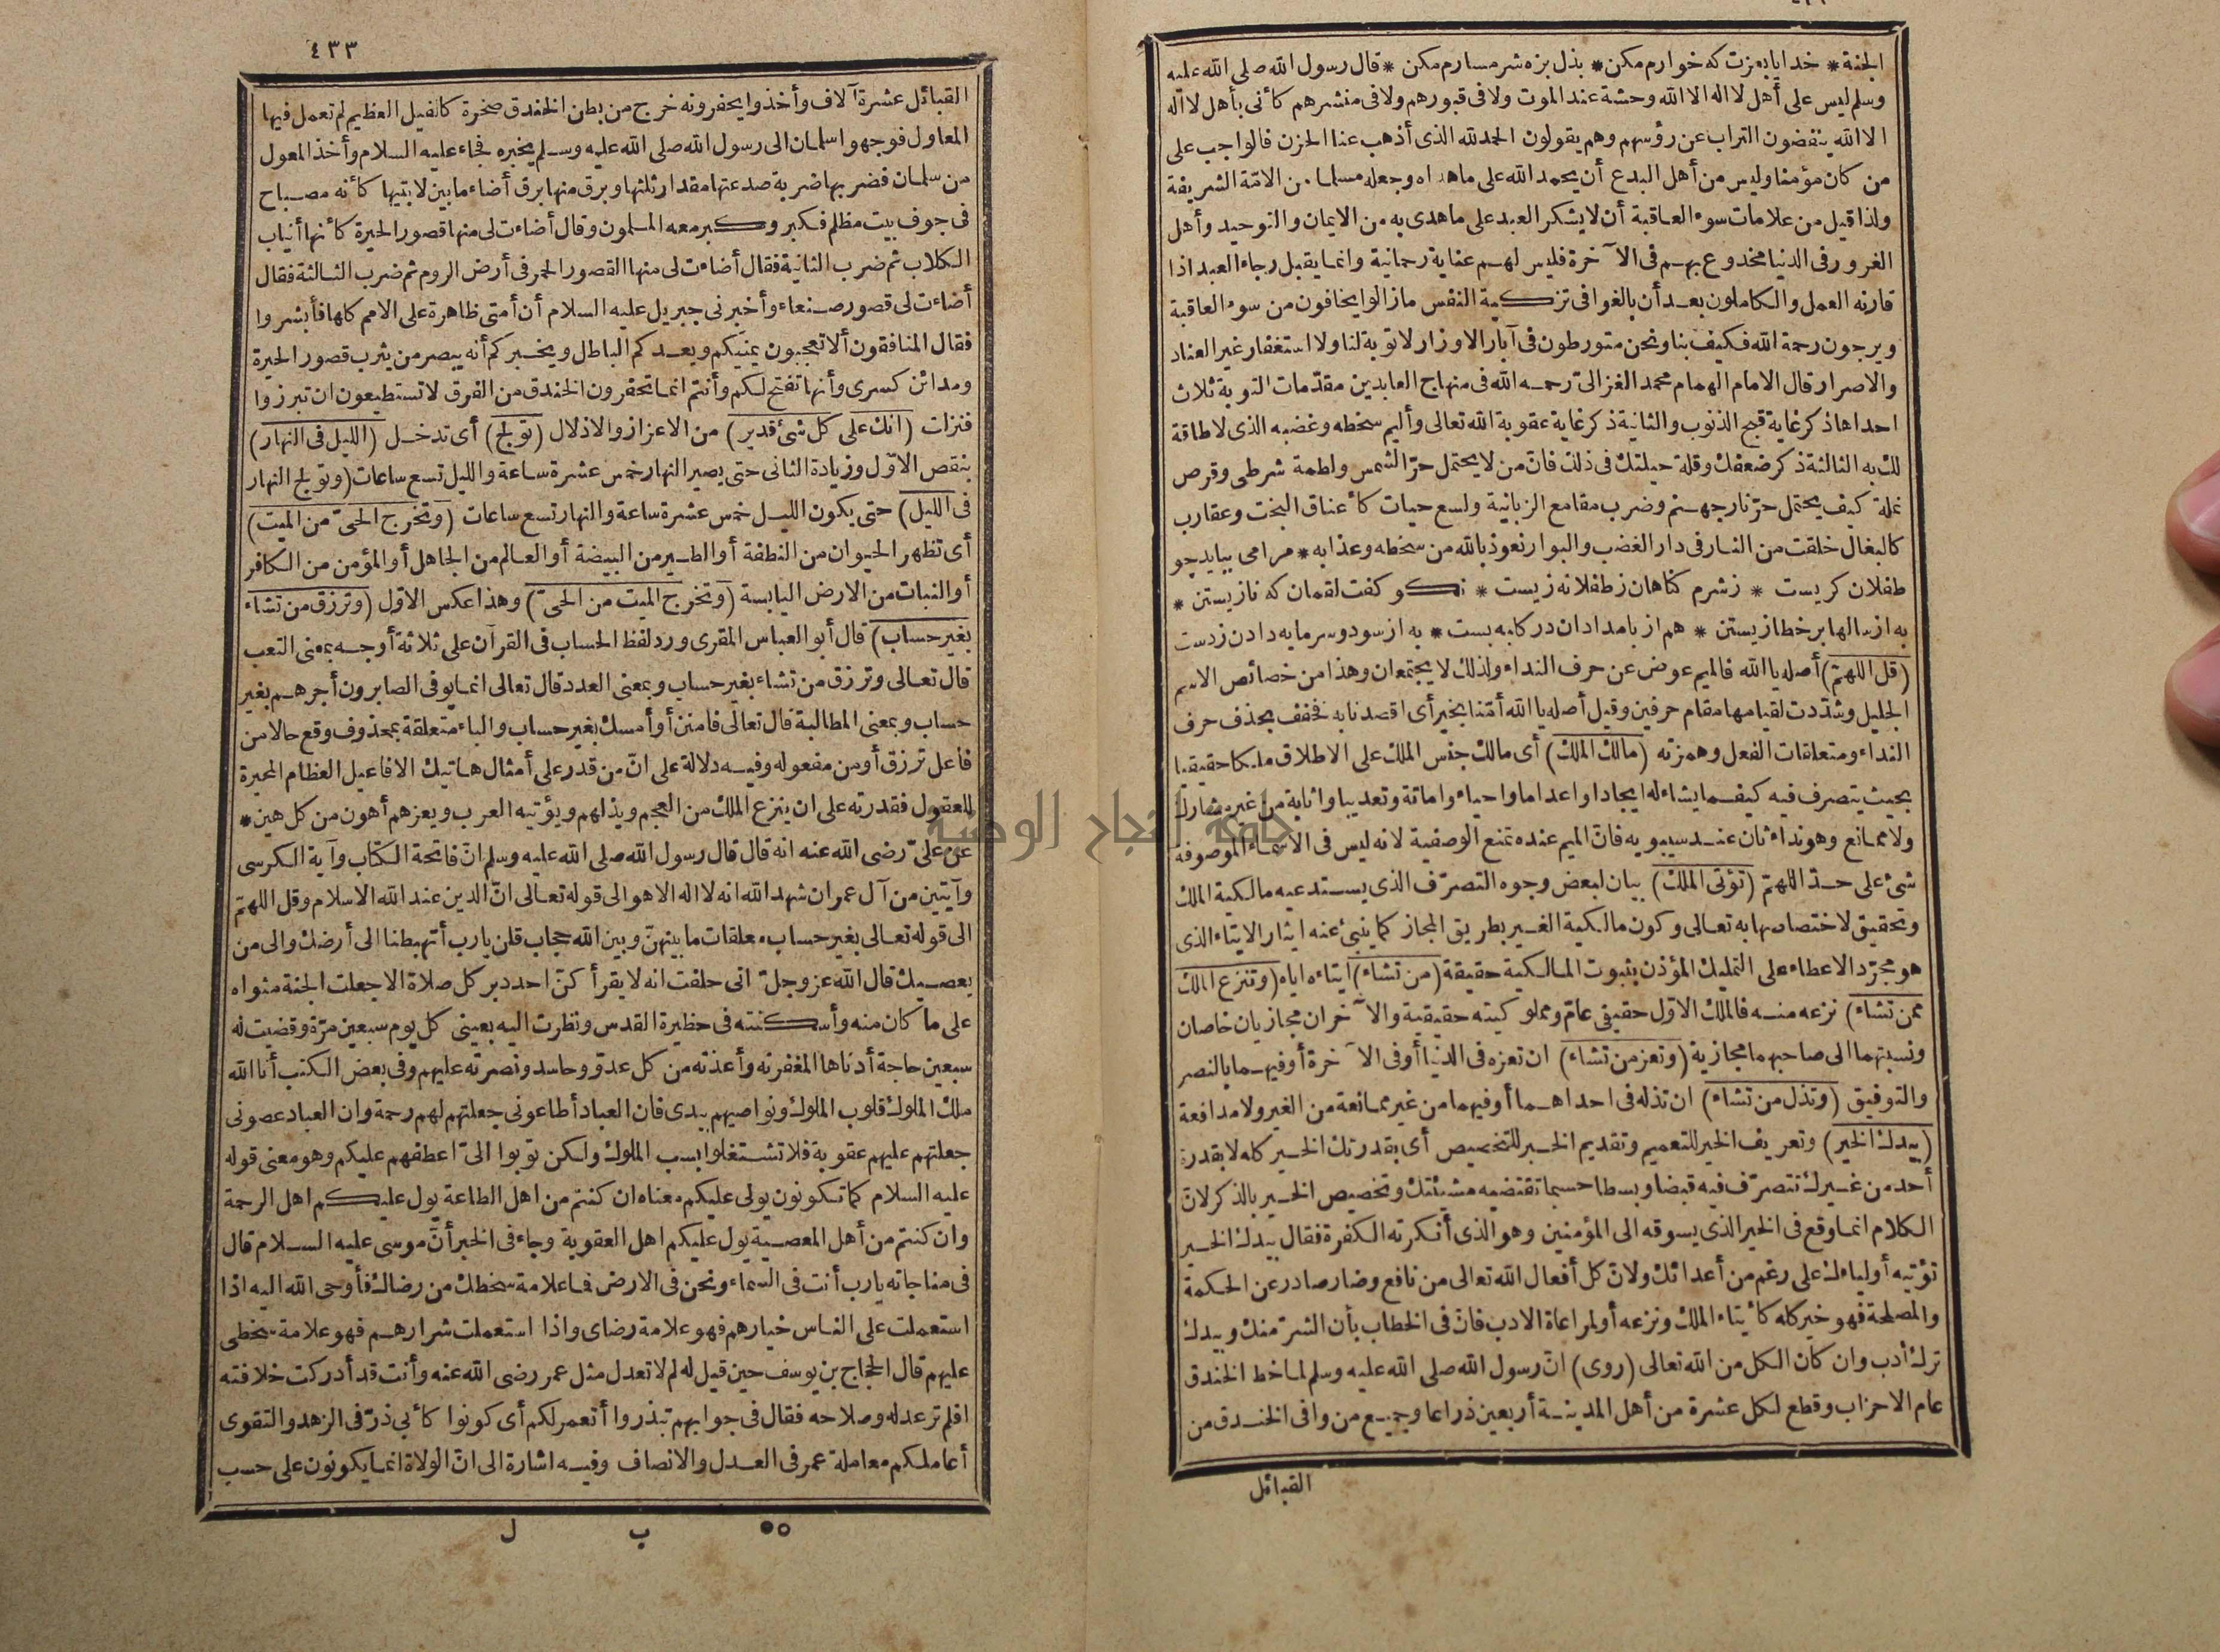 الجنة * خدايا بعزت كه خوارم مكن * بذل بزه شرمسارم مكن * قال رسول الله صلى الله عليه
وسلم ليس على أهل لا اله الا الله وحشة عند الموت ولا فى قبورهم ولا فى منشرهم كأنى بأهل لا اله
الا الله ينفضون التراب عن رؤسهم وهم يقولون الحمد لله الذى أذهب عنا الحزن فالواجب على
من كان مؤمنا وليس من أهل البدع أن يحمد الله على ما هداه وجعله مسلما من الامّة الشريفة
ولذا قيل من علامات سوء العاقبة أن لا يشكر العبد على ما هدى به من الايمان والتوحيد وأهل
الغرور فى الدنيا مخدوع بهم فى الآخرة فليس لهم عناية رحمانية وانما يقبل رجاء العبد اذا
قارنه العمل والكاملون بعد أن بالغوا فى تزكية النفس مازالوا يخافون من سوء العاقبة
ويرجون رحمة الله فكيف بنا ونحن متورطون فى آبار الاوزار لا توبة لنا ولا استغفار غير العناد
والاصرار قال الامام الهمام محمد الغزالىّ رحمه الله فى منهاج العابدين مقدّمات التوبة ثلاث
احداها ذكر غاية قبح الذنوب والثانية ذكر غاية عقوبة الله تعالى وأليم سخطه وغضبه الذى لا طاقة
لك به الثالثة ذكر ضعفك وقلة حيلتك فى ذلك فانّ من لا يحتمل حرّ الشمس ولطمة شرطى وقرص
نملة كيف يحتمل حرّ نار جهنم وضرب مقامع الزبانية ولسع حيات كأعناق البخت وعقارب
كالبغال خلقت من النار فى دار الغضب والبوار نعوذ بالله من سخطه وعذابه * مرا مى ببايد چو
طفلان كريست * زشرم كناهان زطفلانه زيست * نكو كفت لقمان كه نازيستن *
به از سالها بر خطا زيستن * هم از بامدادان در كلبه بست * به از سود وسرمايه دادن زدست
(قل اللهمّ) أصله يا الله فالميم عوض عن حرف النداء ولذلك لا يجتمعان وهذا من خصائص الاسم
الجليل وشدّدت لقيامها مقام حرفين وقيل أصله يا الله أمّنا بخير أى اقصدنا به فخفف بحذف حرف
النداء ومتعلقات الفعل وهمزته (مالك الملك) أى مالك جنس الملك على الاطلاق ملكا حقيقيا
بحيث يتصرف فيه كيفما يشاء له ايجادا واعداما واحياء واماتة وتعذيبا واثابة من غير مشارك
ولا ممانع وهو نداء ثان عند سيبويه فانّ الميم عنده تمنع الوصفية لانه ليس فى الاسماء الموصوفة
شئ على حدّ اللهمّ (تؤتى الملك) بيان لبعض وجوه التصرّف الذى يستدعيه مالكية الملك
وتحقيق لاختصاصها به تعالى وكون مالكية الغير بطريق المجاز كما ينبئ عنه ايثار الايتاء الذى
هو مجرّد الاعطاء على التمليك المؤذن بثبوت المالكية حقيقة (من تشاء) ايتاءه اياه (وتنزع الملك
ممن تشاء) نزعه منه فالملك الاوّل حقيقى عامّ ومملوكيته حقيقية والآخران مجازيان خاصان
ونسبتهما الى صاحبهما مجازية (وتعز من تشاء) ان تعزه فى الدنيا أو فى الآخرة أو فيهما بالنصر
والتوفيق (وتذل من تشاء) ان تذله فى احداهما أو فيهما من غير ممانعة من الغير ولا مدافعة
(بيدك الخير) وتعريف الخير للتعميم وتقديم الخبر للتخصيص أى بقدرتك الخير كله لا بقدرة
أحد من غيرك تتصرّف فيه قبضا وبسطا حسبما تقتضيه مشيئتك وتخصيص الخير بالذكر لانّ
الكلام انما وقع فى الخير الذى يسوقه الى المؤمنين وهو الذى أنكرته الكفرة فقال بيدك الخير
تؤتيه أولياءك على رغم من أعدائك ولانّ كل أفعال الله تعالى من نافع وضار صادر عن الحكمة
والمصلحة فهو خير كله كأيتاء الملك ونزعه أو لمراعاة الادب فانّ فى الخطاب بأن الشرّ منك وبيدك
ترك أدب وان كان الكل من الله تعالى (روى) انّ رسول الله صلى الله عليه وسلم لما خط الخندق
عام الاحزاب وقطع لكل عشرة من أهل المدينة أربعين ذراعا وجميع من وافى الخندق من
القبائل
٤٣٣
القبائل عشرة آلاف وأخذوا يحفرونه خرج من بطن الخندق صخرة كالفيل العظيم لم تعمل فيها
المعاول فوجهوا سلمان الى رسول الله صلى الله عليه وسلم يخبره فجاء عليه السلام وأخذ المعول
من سلمان فضربها ضربة صدعتها مقدار ثلثها وبرق منها برق أضاء ما بين لابتيها كأنه مصباح
فى جوف بيت مظلم فكبر وكبر معه المسلمون وقال أضاءت لى منها قصور الحيرة كأنها أنياب
الكلاب ثم ضرب الثانية فقال أضاءت لى منها القصور الحمر فى أرض الروم ثم ضرب الثالثة فقال
أضاءت لى قصور صنعاء وأخبرنى جبريل عليه السلام أن أمتى ظاهرة على الامم كلها فأبشروا
فقال المنافقون ألا تعجبون يمنيكم ويعدكم الباطل ويخبركم أنه يبصر من يثرب قصور الحيرة
ومدائن كسرى وأنها تفتح لكم وأنتم انما تحفرون الخندق من الفرق لا تستطيعون ان تبرزوا
فنزات (انك على كل شئ قدير) من الاعزاز والاذلال (تولج) أى تدخل (الليل فى النهار)
بنقص الاوّل وزيادة الثانى حتى يصير النهار خمس عشرة ساعة والليل تسع ساعات (وتولج النهار
فى الليل) حتى يكون الليل خمس عشرة ساعة والنهار تسع ساعات (وتخرج الحىّ من الميت)
أى تظهر الحيوان من النطفة أو الطير من البيضة أو العالم من الجاهل أو المؤمن من الكافر
أو النبات من الارض اليابسة (وتخرج الميت من الحىّ) وهذا عكس الاوّل (وترزق من تشاء
بغير حساب) قال أبو العباس المقرى ورد لفظ الحساب فى القرآن على ثلاثة أوجه بمعنى التعب
قال تعالى وترزق من تشاء بغير حساب وبمعنى العدد قال تعالى انما يوفى الصابرون أجرهم بغير
حساب وبمعنى المطالبة قال تعالى فامنن أو أمسك بغير حساب والباء متعلقة بمحذوف وقع حالا من
فاعل ترزق أو من مفعوله وفيه دلالة على انّ من قدر على أمثال هاتيك الافاعيل العظام المحيرة
للعقول فقدرته على ان ينزع الملك من العجم ويذلهم ويؤتيه العرب ويعزهم أهون من كل هين *
عن علىّ رضى الله عنه انه قال قال رسول الله صلى الله عليه وسلم انّ فاتحة الكتاب وآية الكرسى
وآيتين من آل عمران شهد الله انه لا اله الا هو الى قوله تعالى انّ الدين عند الله الاسلام وقل اللهمّ
الى قوله تعالى بغير حساب معلقات ما بينهنّ وبين الله حجاب قلن يا رب أتهبطنا الى أرضك والى من
يعصيك قال الله عز وجلّ انى حلفت انه لا يقرأ كنّ احد دبر كل صلاة الا جعلت الجنة مثواه
على ما كان منه وأسكنته فى حظيرة القدس ونظرت اليه بعينى كل يوم سبعين مرّة وقضيت له
سبعين حاجة أدناها المغفرة وأعذته من كل عدوّ وحاسد ونصرته عليهم وفى بعض الكتب أنا الله
ملك الملوك قلوب الملوك ونواصيهم بيدى فان العباد أطاعونى جعلتهم لهم رحمة وان العباد عصونى
جعلتهم عليهم عقوبة فلا تشتغلوا بسب الملوك ولكن توبوا الىّ اعطفهم عليكم وهو معنى قوله
عليه السلام كما تكونون يولى عليكم معناه ان كنتم من اهل الطاعة يول عليكم اهل الرحمة
وان كنتم من أهل المعصية يول عليكم اهل العقوبة وجاء فى الخبر أنّ موسى عليه السلام قال
فى مناجاته يا رب أنت فى السماء ونحن فى الارض فما علامة سخطك من رضاك فأوحى الله اليه اذا
استعملت على الناس خيارهم فهو علامة رضاى واذا استعملت شرارهم فهو علامة سخطى
عليهم قال الحجاج بن يوسف حين قيل له لم لا تعدل مثل عمر رضى الله عنه وأنت قد أدركت خلافته
افلم تر عدله وصلاحه فقال فى جوابهم تبذروا أتعمر لكم أى كونوا كأبى ذرّ فى الزهد والتقوى
أعاملكم معاملة عمر فى العدل والانصاف وفيه اشارة الى انّ الولاة انما يكونون على حسب
٥٥ ب ل
جامعة النجاح الوطنية